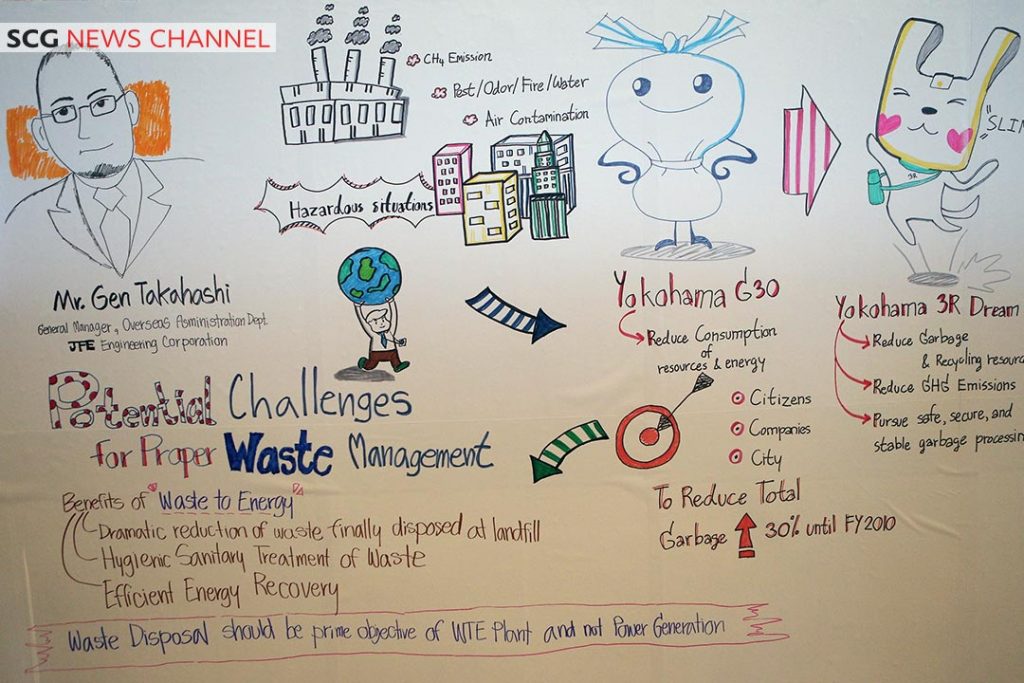 SCG NEWS CHANNEL
CH4 Emission
Pest/Odor/Fire/Water
Air Contamination
Hazardous situations
"SLIM
3R
Mr. Gen Takahashi
General Manager, Overseas Asministration Dept.
JFE Engineering Corporation
Potential Challenges
for Proper Waste Management
Benefits of "Waste to Energy"
Dramatic reduction of waste finally disposed at landfill
Hygienic Sanitary Treatment of Waste
Efficient Energy Recovery
Waste Disposal should be prime objective of WTE Plant and not Power Generation
Yokohama G30
Reduce Consumption
of
resources & energy
Citizens
Companies
City
To Reduce Total
Garbage 30% until FY2010
Yokohama 3R Dream
Reduce Garbage
& Recycling resourc
Reduce GHG Emissions
Pursue safe, secure, and
stable garbage processin